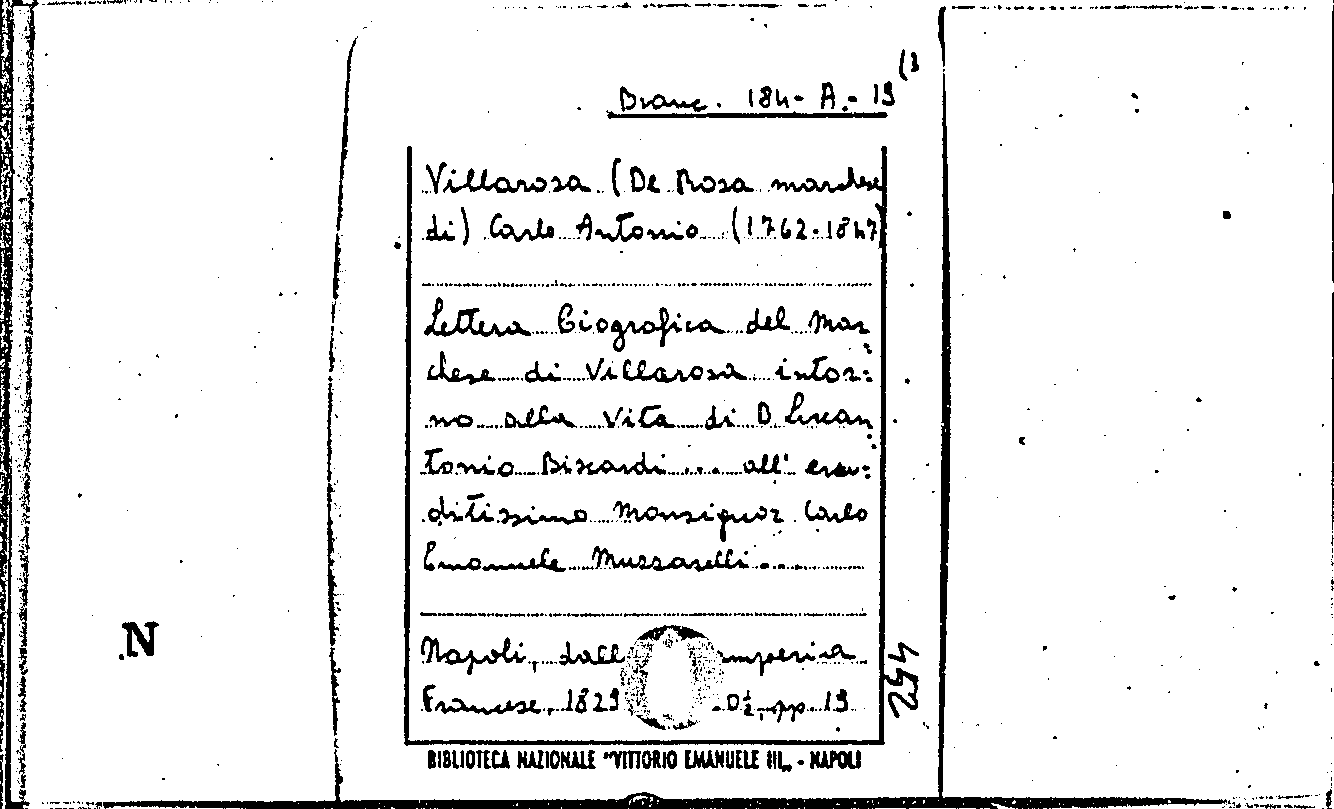 (3
Branc. 184- A.- 19
Villarosa (De Rosa marchese
di) Carlo Antonio (1762-1847)
Lettera biografica del Mar
chese di Villarosa intor:
no alla vita di D Lucan
tonio Biscardi ... all' eru:
ditissimo Monsignor Carlo
Emanuele Muzzarelli ...
Napoli, dall mperia
Francese, 1829 pp. 19
N
BIBLIOTECA NAZIONALE "VITTORIO EMANUELE III„ - NAPOLI